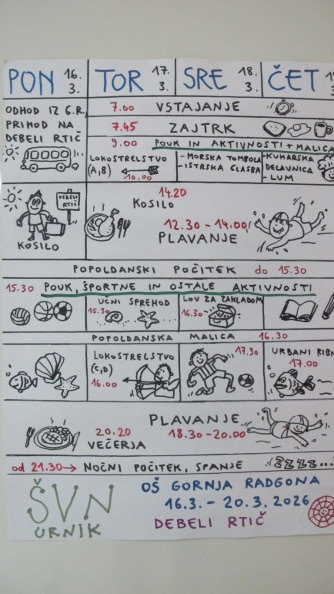 PON 16. 3. TOR 17. 3. SRE 18. 3. ČET
ODHOD IZ G.R.,
PRIHOD NA
DEBELI RTIČ
7.00 VSTAJANJE
7.45 ZAJTRK
9.00 POUK IN AKTIVNOSTI + MALICA
LOKOSTRELSTVO
(A,B) 10.00
- MORSKA TOMBOLA
- ISTRSKA GLASBA
- KUHARSKA
DELAVNICA
- LUM
DEBELI
RTIČ
KOSILO
14.20
KOSILO
12.30 - 14.00
PLAVANJE
POPOLDANSKI POČITEK do 15.30
15.30 POUK, ŠPORTNE IN OSTALE AKTIVNOSTI
UČNI SPREHOD
15.30
LOV ZA ZAKLADOM
16.30
POPOLDANSKA MALICA 16.30
LOKOSTRELSTVO
(C,D)
16.00
17.30
URBANI RIBN
17.00
PLAVANJE
18.30 - 20.00
20.20
VEČERJA
od 21.30 → NOČNI POČITEK, SPANJE ZZZZ...
ŠVN
URNIK
OŠ GORNJA RADGONA
16.3. - 20.3.2026
DEBELI RTIČ